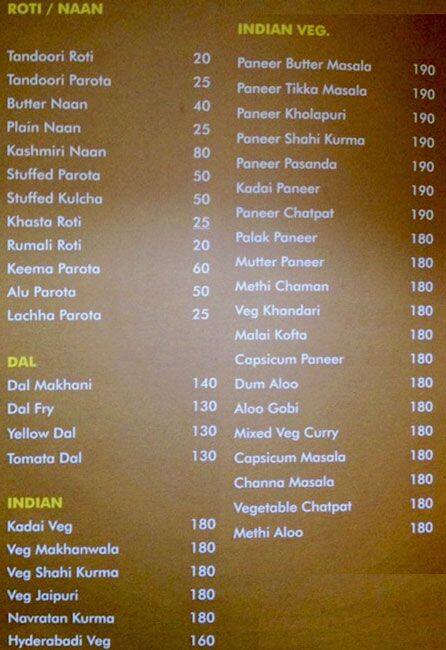 ROTI / NAAN
Tandoori Roti 20
Tandoori Parota 25
Butter Naan 40
Plain Naan 25
Kashmiri Naan 80
Stuffed Parota 50
Stuffed Kulcha 50
Khasta Roti 25
Rumali Roti 20
Keema Parota 60
Alu Parota 50
Lachha Parota 25
DAL
Dal Makhani 140
Dal Fry 130
Yellow Dal 130
Tomata Dal 130
INDIAN
Kadai Veg 180
Veg Makhanwala 180
Veg Shahi Kurma 180
Veg Jaipuri 180
Navratan Kurma 180
Hyderabadi Veg 160
INDIAN VEG.
Paneer Butter Masala 190
Paneer Tikka Masala 190
Paneer Kholapuri 190
Paneer Shahi Kurma 190
Paneer Pasanda 190
Kadai Paneer 190
Paneer Chatpat 190
Palak Paneer 180
Mutter Paneer 180
Methi Chaman 180
Veg Khandari 180
Malai Kofta 180
Capsicum Paneer 180
Dum Aloo 180
Aloo Gobi 180
Mixed Veg Curry 180
Capsicum Masala 180
Channa Masala 180
Vegetable Chatpat 180
Methi Aloo 180